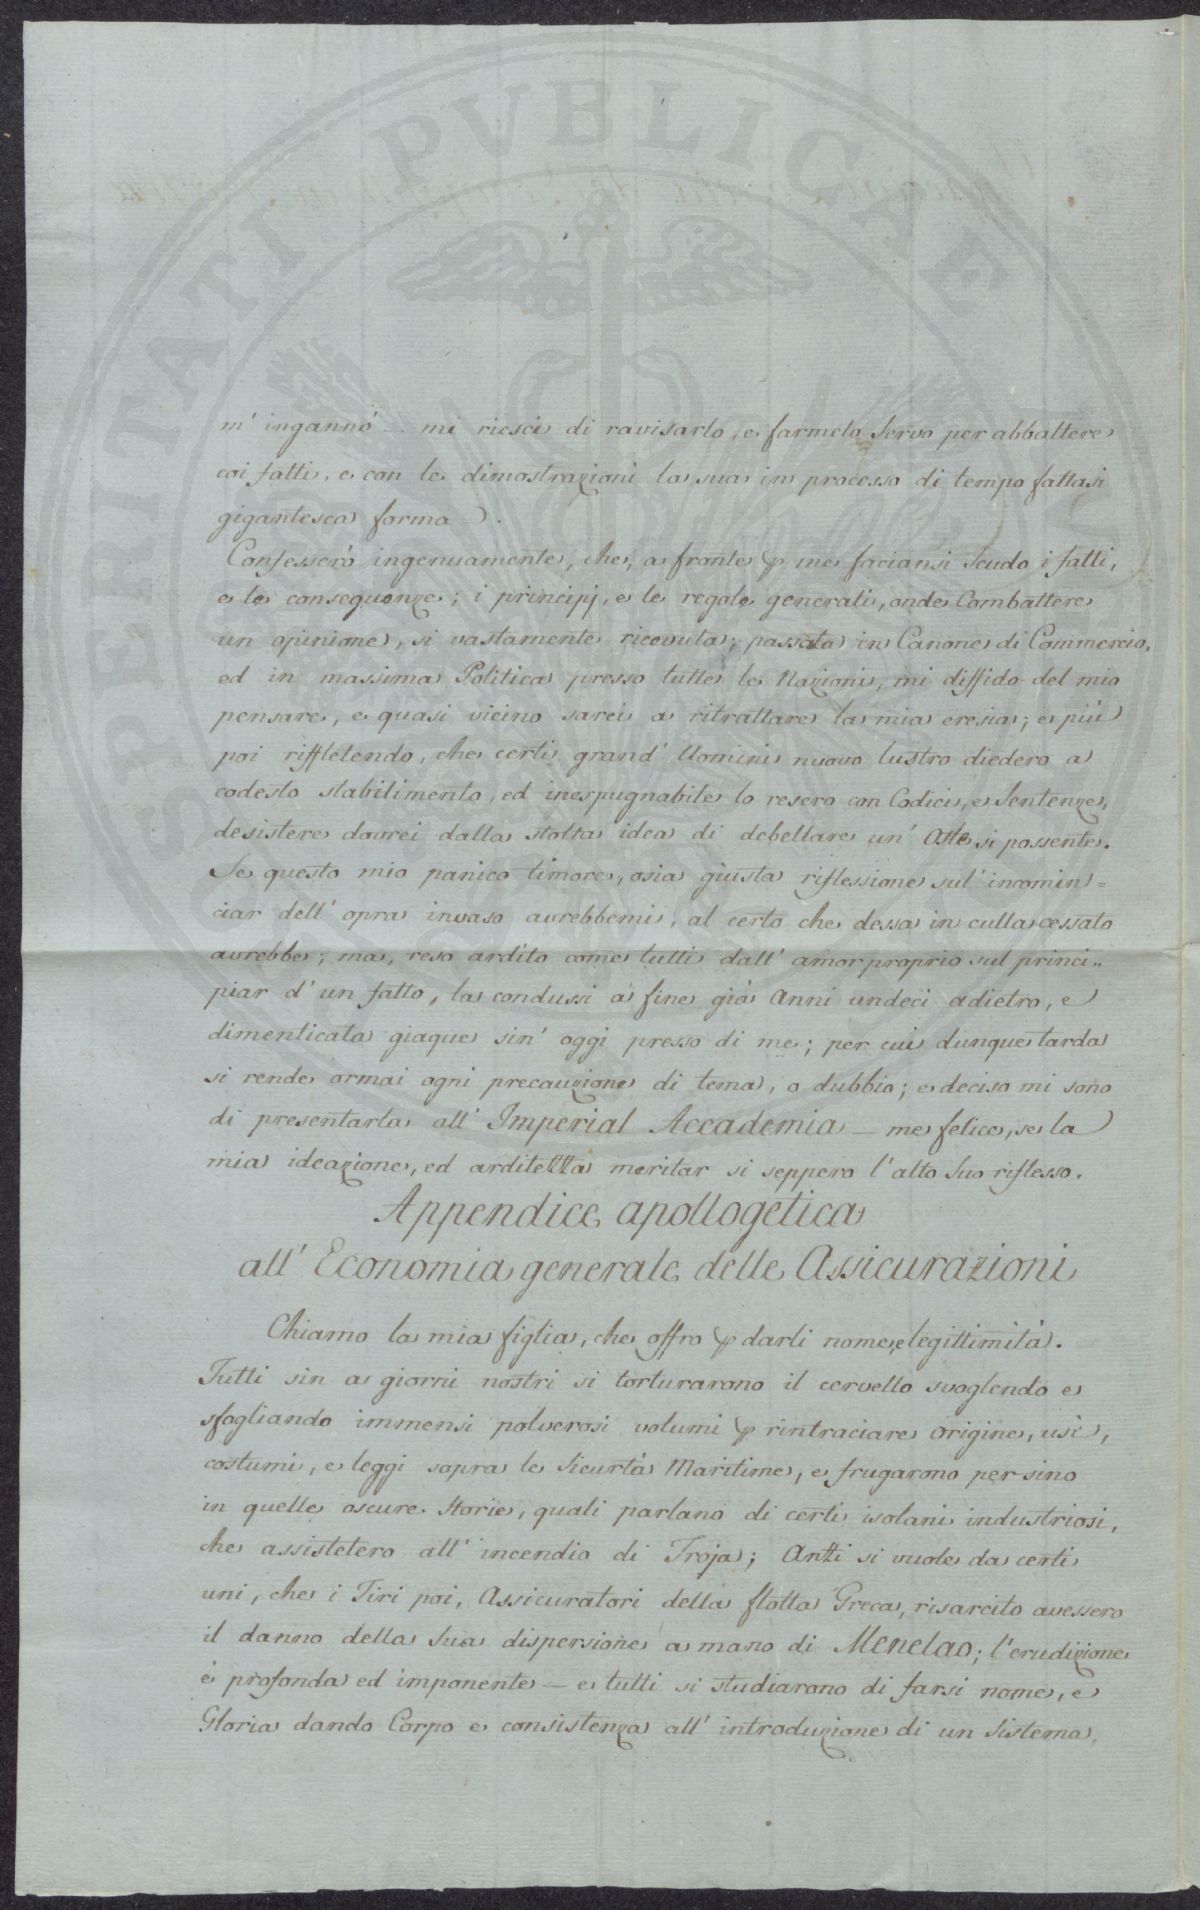 PROSPERITATI PVBLICAE
m' ingannò — mi riescì di ravisarlo, e farmelo Servo per abbattere
coi fatti, e con le dimostrazioni la sua in processo di tempo fattasi
gigantesca forma.
Confesserò ingenuamente, che, a fronte p me faciansi Scudo i fatti,
e le conseguenze; i principj, e le regole generali, onde Combattere
un opinione, si vastamente ricevuta; passata in Canone di Commercio,
ed in massima Politica presso tutte le Nazioni, mi diffido del mio
pensare, e quasi vicino sarei a ritrattare la mia eresia; e più
poi riffletendo, che certi grand' Uomini nuovo lustro diedero a
codesto stabilimento, ed inespugnabile lo resero con Codici, e Sentenze,
desistere dovrei dalla stolta idea di debellare un' Oste si possente.
Se questo mio panico timore, osia giusta riflessione sul' incomin=
ciar dell' opra invaso avrebbemi, al certo che dessa in culla cessato
avrebbe; ma, reso ardito come tutti dall' amor proprio sul princi..
piar d' un fatto, la condussi a fine già Anni undeci adietro, e
dimenticata giaque sin' oggi presso di me; per cui dunque tarda
si rende ormai ogni precauzione di tema, o dubbio; e deciso mi sono
di presentarla all' Imperial Accademia — me felice, se la
mia ideazione, ed arditetta meritar si seppero l' alto Suo riflesso.
Appendice apollogetica
all' Economia generale delle Assicurazioni
Chiamo la mia figlia, che offro p darli nome, e legittimità.
Tutti sin a giorni nostri si torturarono il cervello svoglendo e
sfogliando immensi polverosi volumi p rintraciare origine, usi,
costumi, e leggi sopra le Sicurtà Maritime, e frugarono per sino
in quelle oscure Storie, quali parlano di certi isolani industriosi,
che assistetero all' incendio di Troja; Anzi si vuole da certi
uni, che i Tiri poi, Assicuratori della flotta Greca, risarcito avessero
il danno della Sua dispersione a mano di Menelao; l' erudizione
è profonda ed imponente — e tutti si studiarono di farsi nome, e
Gloria dando Corpo e consistenza all' introduzione di un Sistema,